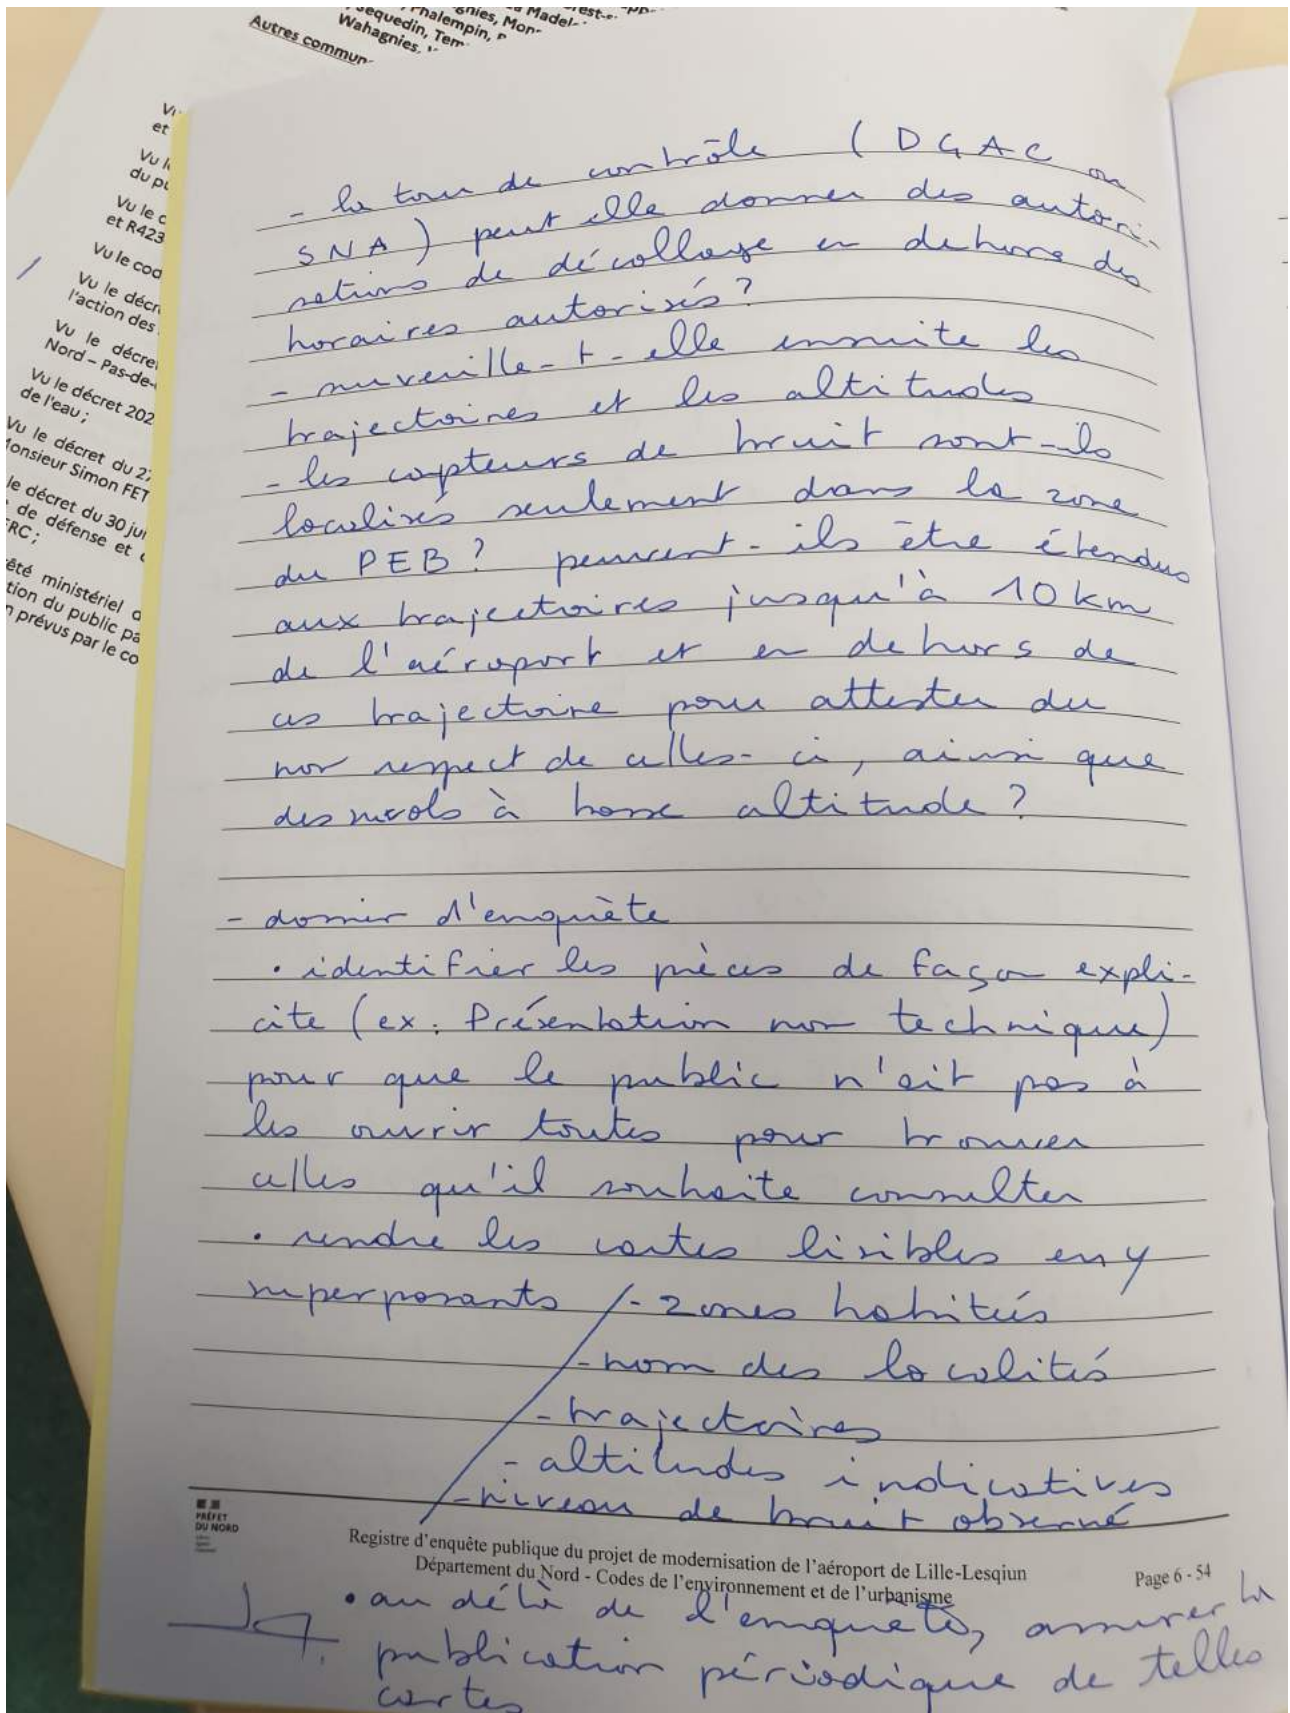 Autres commun
Vu le cod
Vu le décr
l'action des
Vu le décre
Nord – Pas-de-
Vu le décret 202
de l'eau ;
Vu le décret du 2
Monsieur Simon FET
le décret du 30 jui
de défense et
ERC ;
êté ministériel d
tion du public pa
n prévus par le co
- la tour de contrôle (DGAC ou
SNA) peut elle donner des autori-
sations de décollage en dehors des
horaires autorisés ?
- surveille-t-elle ensuite les
trajectoires et les altitudes
- les capteurs de bruit sont-ils
localisés seulement dans la zone
du PEB ? peuvent-ils être étendus
aux trajectoires jusqu'à 10 km
de l'aéroport et en dehors de
ces trajectoire pour attester du
non respect de celles-ci, ainsi que
des survols à basse altitude ?
- dossier d'enquète
• identifier les pièces de façon expli-
cite (ex : Présentation non technique)
pour que le public n'ait pas à
les ouvrir toutes pour trouver
celles qu'il souhaite consulter
• rendre les cartes lisibles en y
superposants /- zones habitées
- nom des localités
- trajectoires
- altitudes indicatives
- niveau de bruit observé
PRÉFET
DU NORD
Registre d'enquête publique du projet de modernisation de l'aéroport de Lille-Lesqiun
Département du Nord - Codes de l'environnement et de l'urbanisme
Page 6 - 54
• au délà de l'enquête, assurer la
publication périodique de telles
cartes